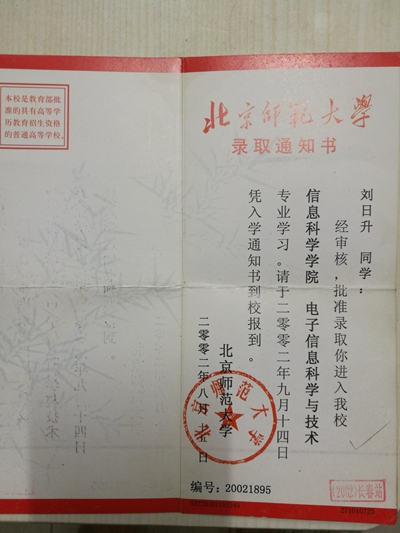 本校是教育部批
准的具有高等学
历教育招生资格
的普通高等学校。
北京师范大学
录取通知书
刘日升 同学：
经审核，批准录取你进入我校
信息科学学院 电子信息科学与技术
专业学习。请于二零零二年九月十四日
凭入学通知书到校报到。
北京师范大学
二零零二年八月十五日
北京师范大学
编号：20021895
(2002)长春站